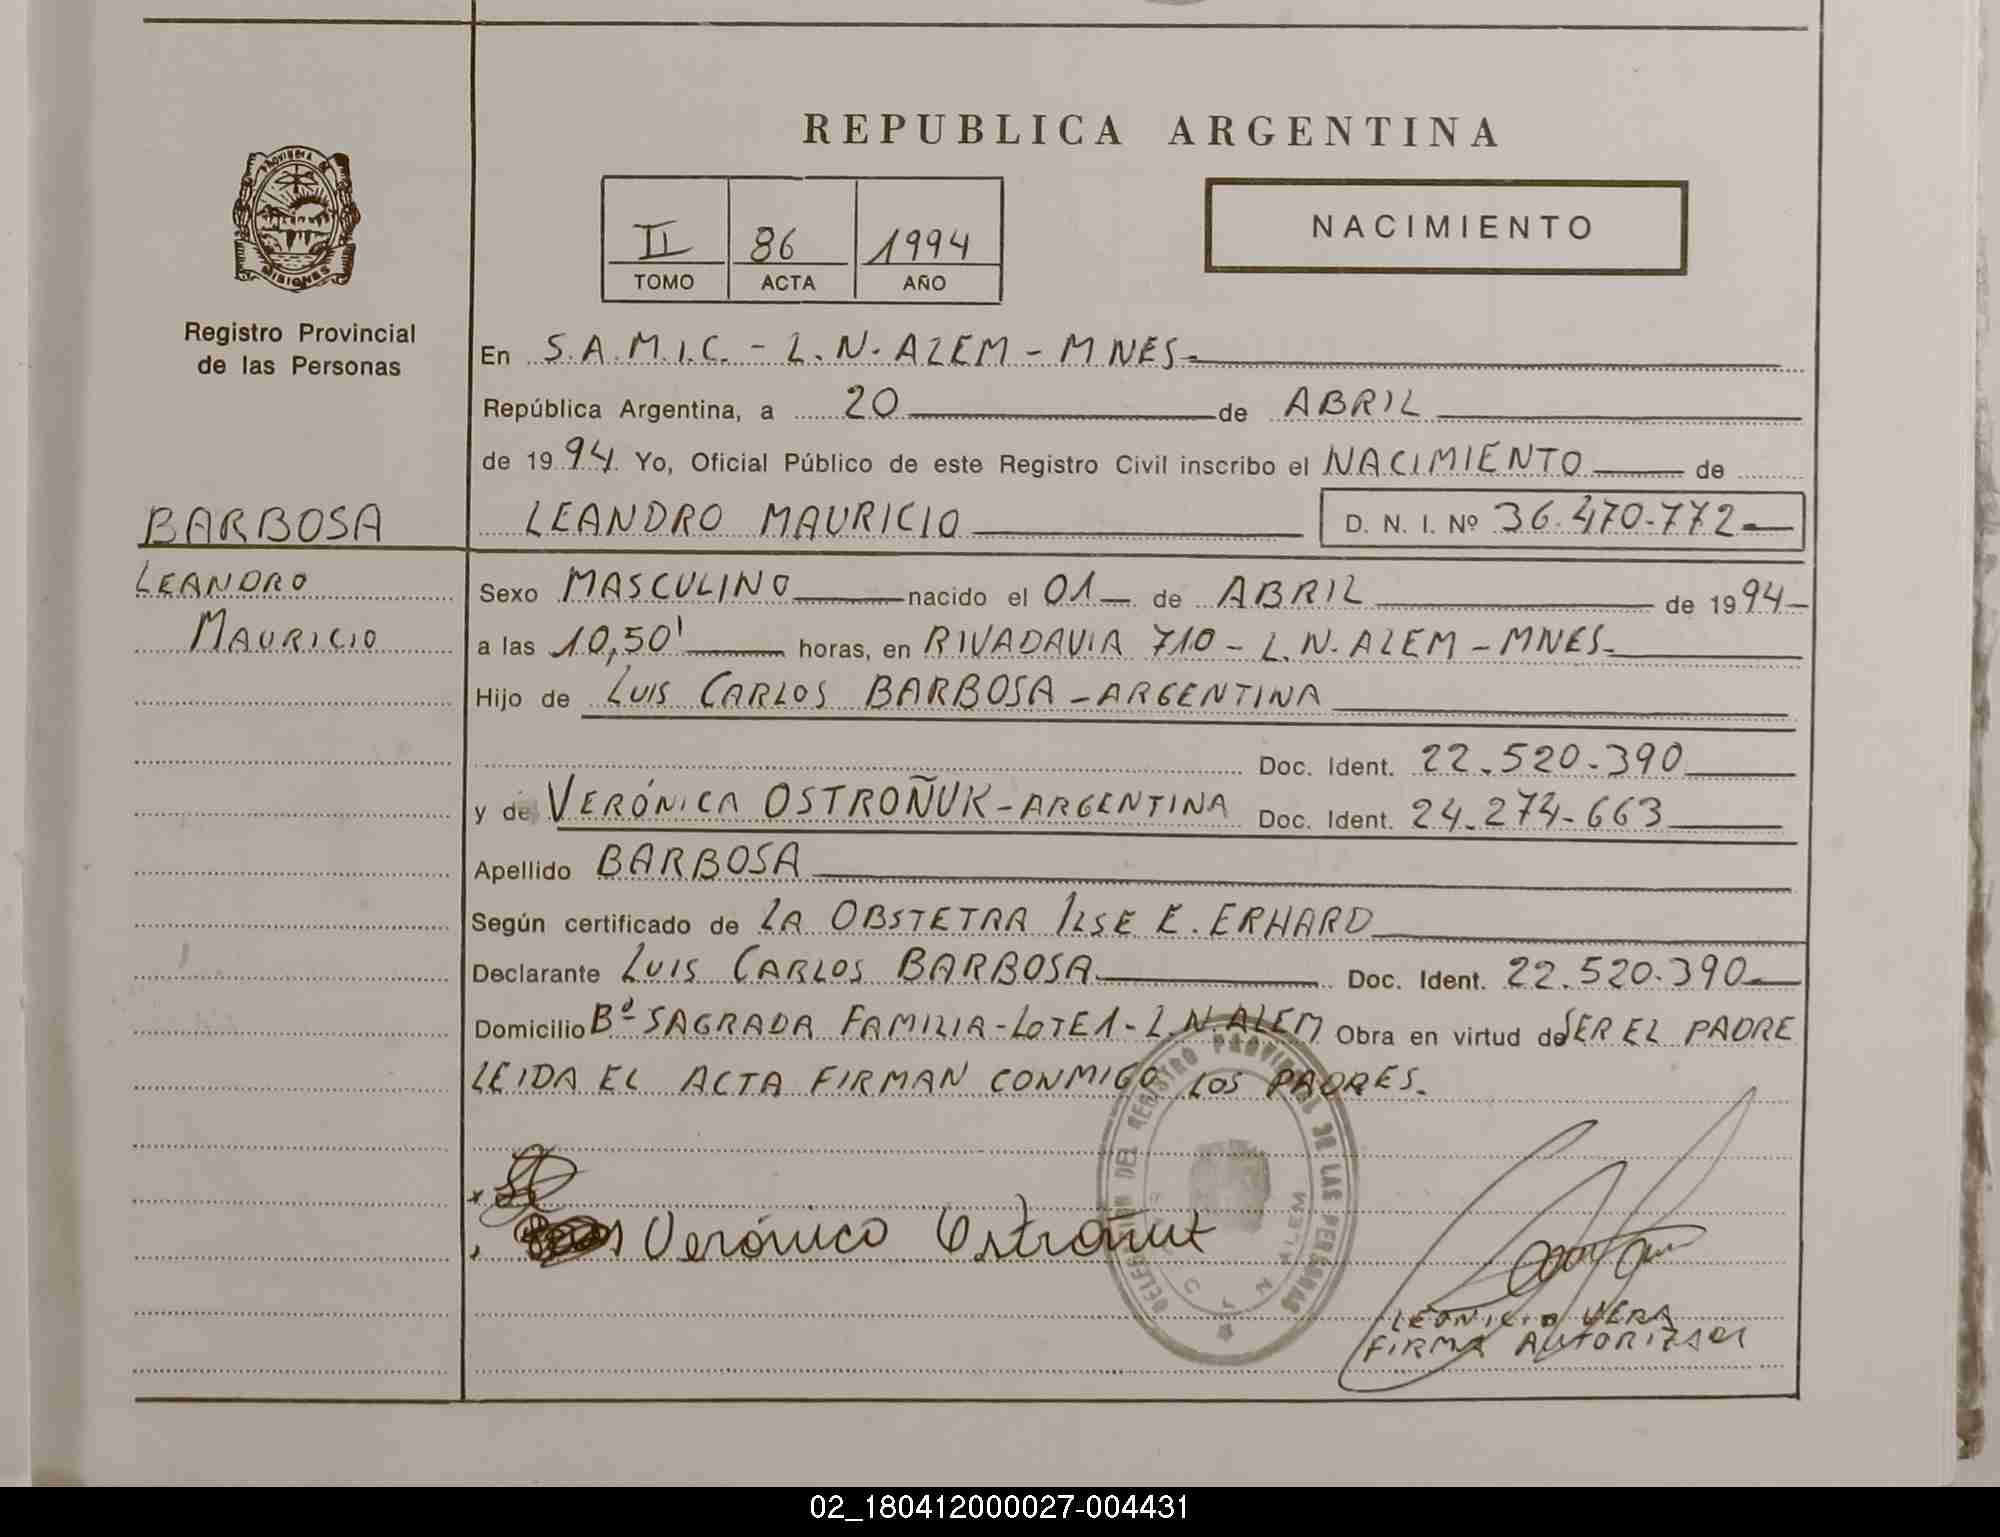 REPUBLICA ARGENTINA
PROVINCIA DE
MISIONES
II 86 1994
TOMO ACTA AÑO
NACIMIENTO
Registro Provincial
de las Personas
En S.A.M.I.C. - L.N. ALEM - MNES-
República Argentina, a 20 de ABRIL
de 1994. Yo, Oficial Público de este Registro Civil inscribo el NACIMIENTO de
BARBOSA
LEANDRO MAURICIO D. N. I. Nº 36.470.772
LEANDRO
MAURICIO
Sexo MASCULINO nacido el 01 de ABRIL de 1994
a las 10,50' horas, en RIVADAVIA 710 - L.N. ALEM - MNES-
Hijo de LUIS CARLOS BARBOSA - ARGENTINA
Doc. Ident. 22.520.390
y de VERÓNICA OSTROÑUK - ARGENTINA Doc. Ident. 24.274.663
Apellido BARBOSA
Según certificado de LA OBSTETRA ILSE E. ERHARD
Declarante LUIS CARLOS BARBOSA Doc. Ident. 22.520.390
Domicilio Bº SAGRADA FAMILIA - LOTE 1 - L.N. ALEM Obra en virtud de SER EL PADRE
LEIDA EL ACTA FIRMAN CONMIGO LOS PADRES.
DELEGACION DEL REGISTRO PROVINCIAL DE LAS PERSONAS
N ALEM
Verónica Ostroñuk
LEONICIO VERA
FIRMA AUTORIZADA
02_180412000027-004431